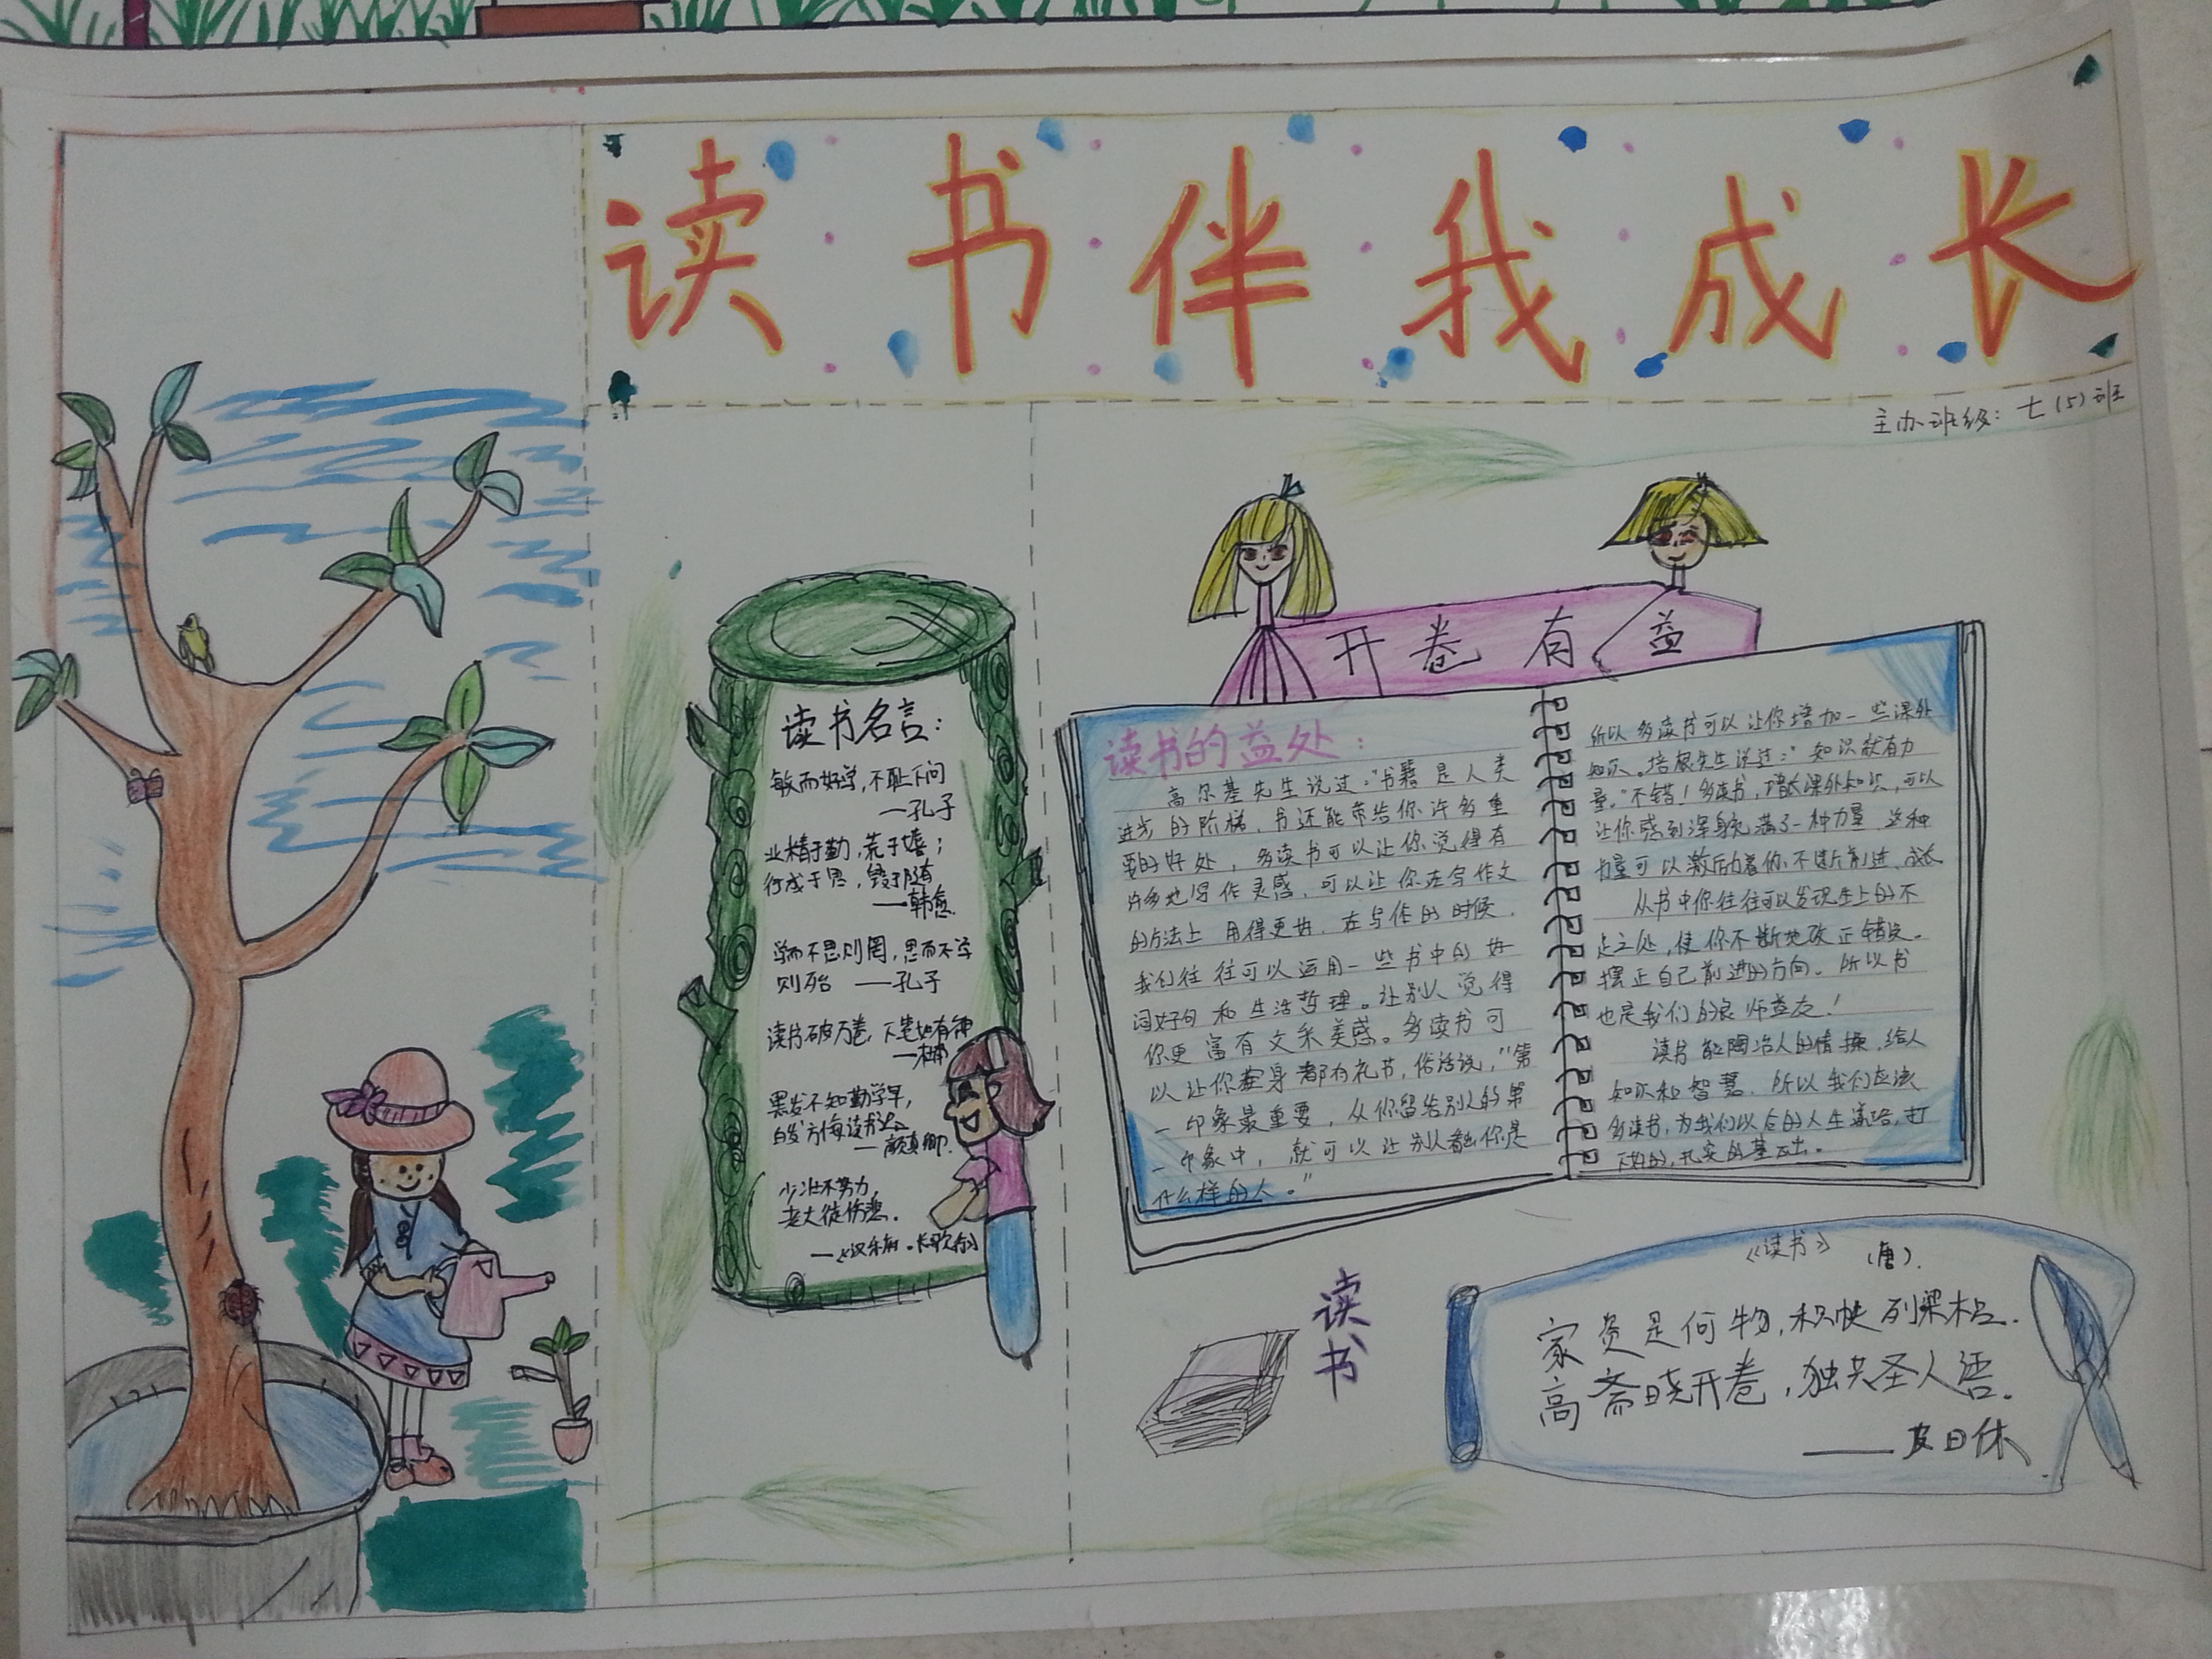 读书伴我成长
主办班级：七(5)班
读书名言：
敏而好学，不耻下问
—孔子
业精于勤，荒于嬉；
行成于思，毁于随
——韩愈
学而不思则罔，思而不学
则殆 ——孔子
读书破万卷，下笔如有神
黑发不知勤学早，
白发方悔读书迟
—颜真卿
少壮不努力，
老大徒伤悲。
—《汉乐府·长歌行》
开卷有益
读书的益处：
高尔基先生说过："书籍是人类
进步的阶梯，书还能带给你许多重
要的好处，多读书可以让你觉得有
许多地写作灵感，可以让你在写作文
的方法上用得更好，在写作的时候，
我们往往可以运用一些书中的好
词好句和生活哲理。让别人觉得
你更富有文采美感。多读书可
以让你全身都有礼节，俗话说，"第
一印象最重要，从你留给别人的第
一印象中，就可以让别人看出你是
什么样的人。"
所以多读书可以让你增加一些课外
知识。培根先生说过："知识就有力
量。"不错！多读书，增长课外知识，可以
让你感到浑身充满了一种力量，这种
力量可以激励着你不断前进、成长
从书中你往往可以发现生上的不
足之处，使你不断地改正错误。
摆正自己前进的方向。所以书
也是我们的良师益友！
读书能陶冶人的情操，给人
知识和智慧，所以我们应该
多读书，为我们以后的人生道路，打
下好的，扎实的基石出。
读书
《读书》（唐）
家资是何物，积帙列梁梠。
高斋晓开卷，独共圣人语。
——皮日休